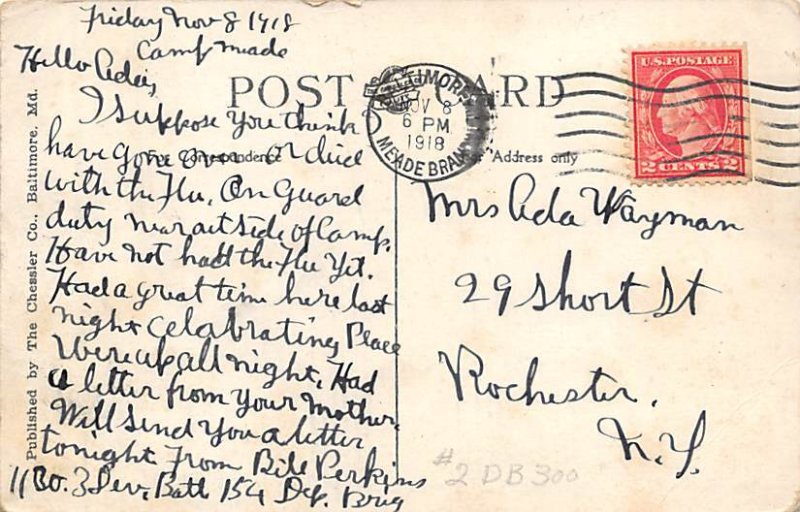 Friday Nov 8 1918
Camp Meade
Hello Ada,
I suppose you think I
have gone over or died
with the Flu. On Guard
duty near out side of Camp.
Have not had the Flu yet.
Had a great time here last
night celabrating Peace
Were up all night. Had
a letter from your Mother.
Will send you a letter
tonight From Bill Perkins
11 Bo. 3 Dev. Batt 154 Dep. Brig
POST CARD
For Correspondence
Address only
BALTIMORE, MD.
NOV 8
6 PM
1918
MEADE BRANCH
U.S. POSTAGE
2 CENTS 2
Mrs Ada Wayman
29 Short St
Rochester.
N.Y.
#2 DB 300
Published by The Chessler Co., Baltimore, Md.